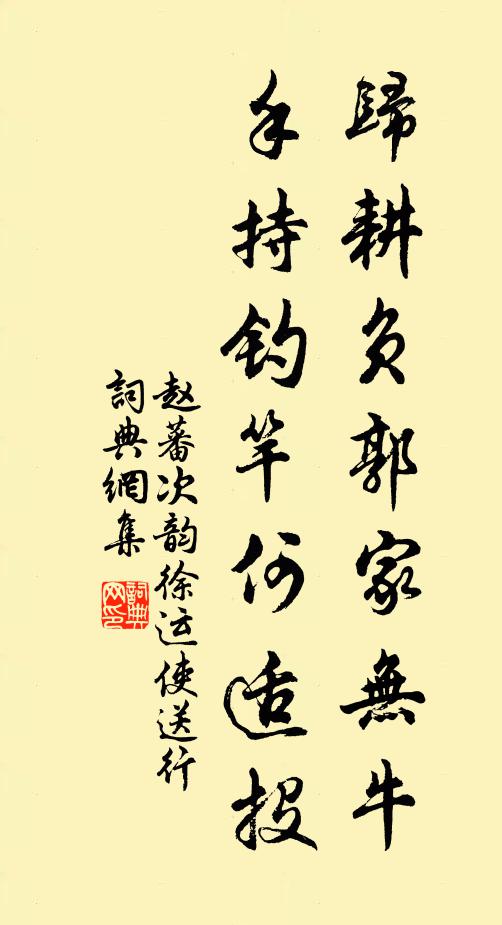 歸耕負郭家無牛
手持釣竿何适投
赵蕃次韵徐运使送行
詞典網集
詞典网印